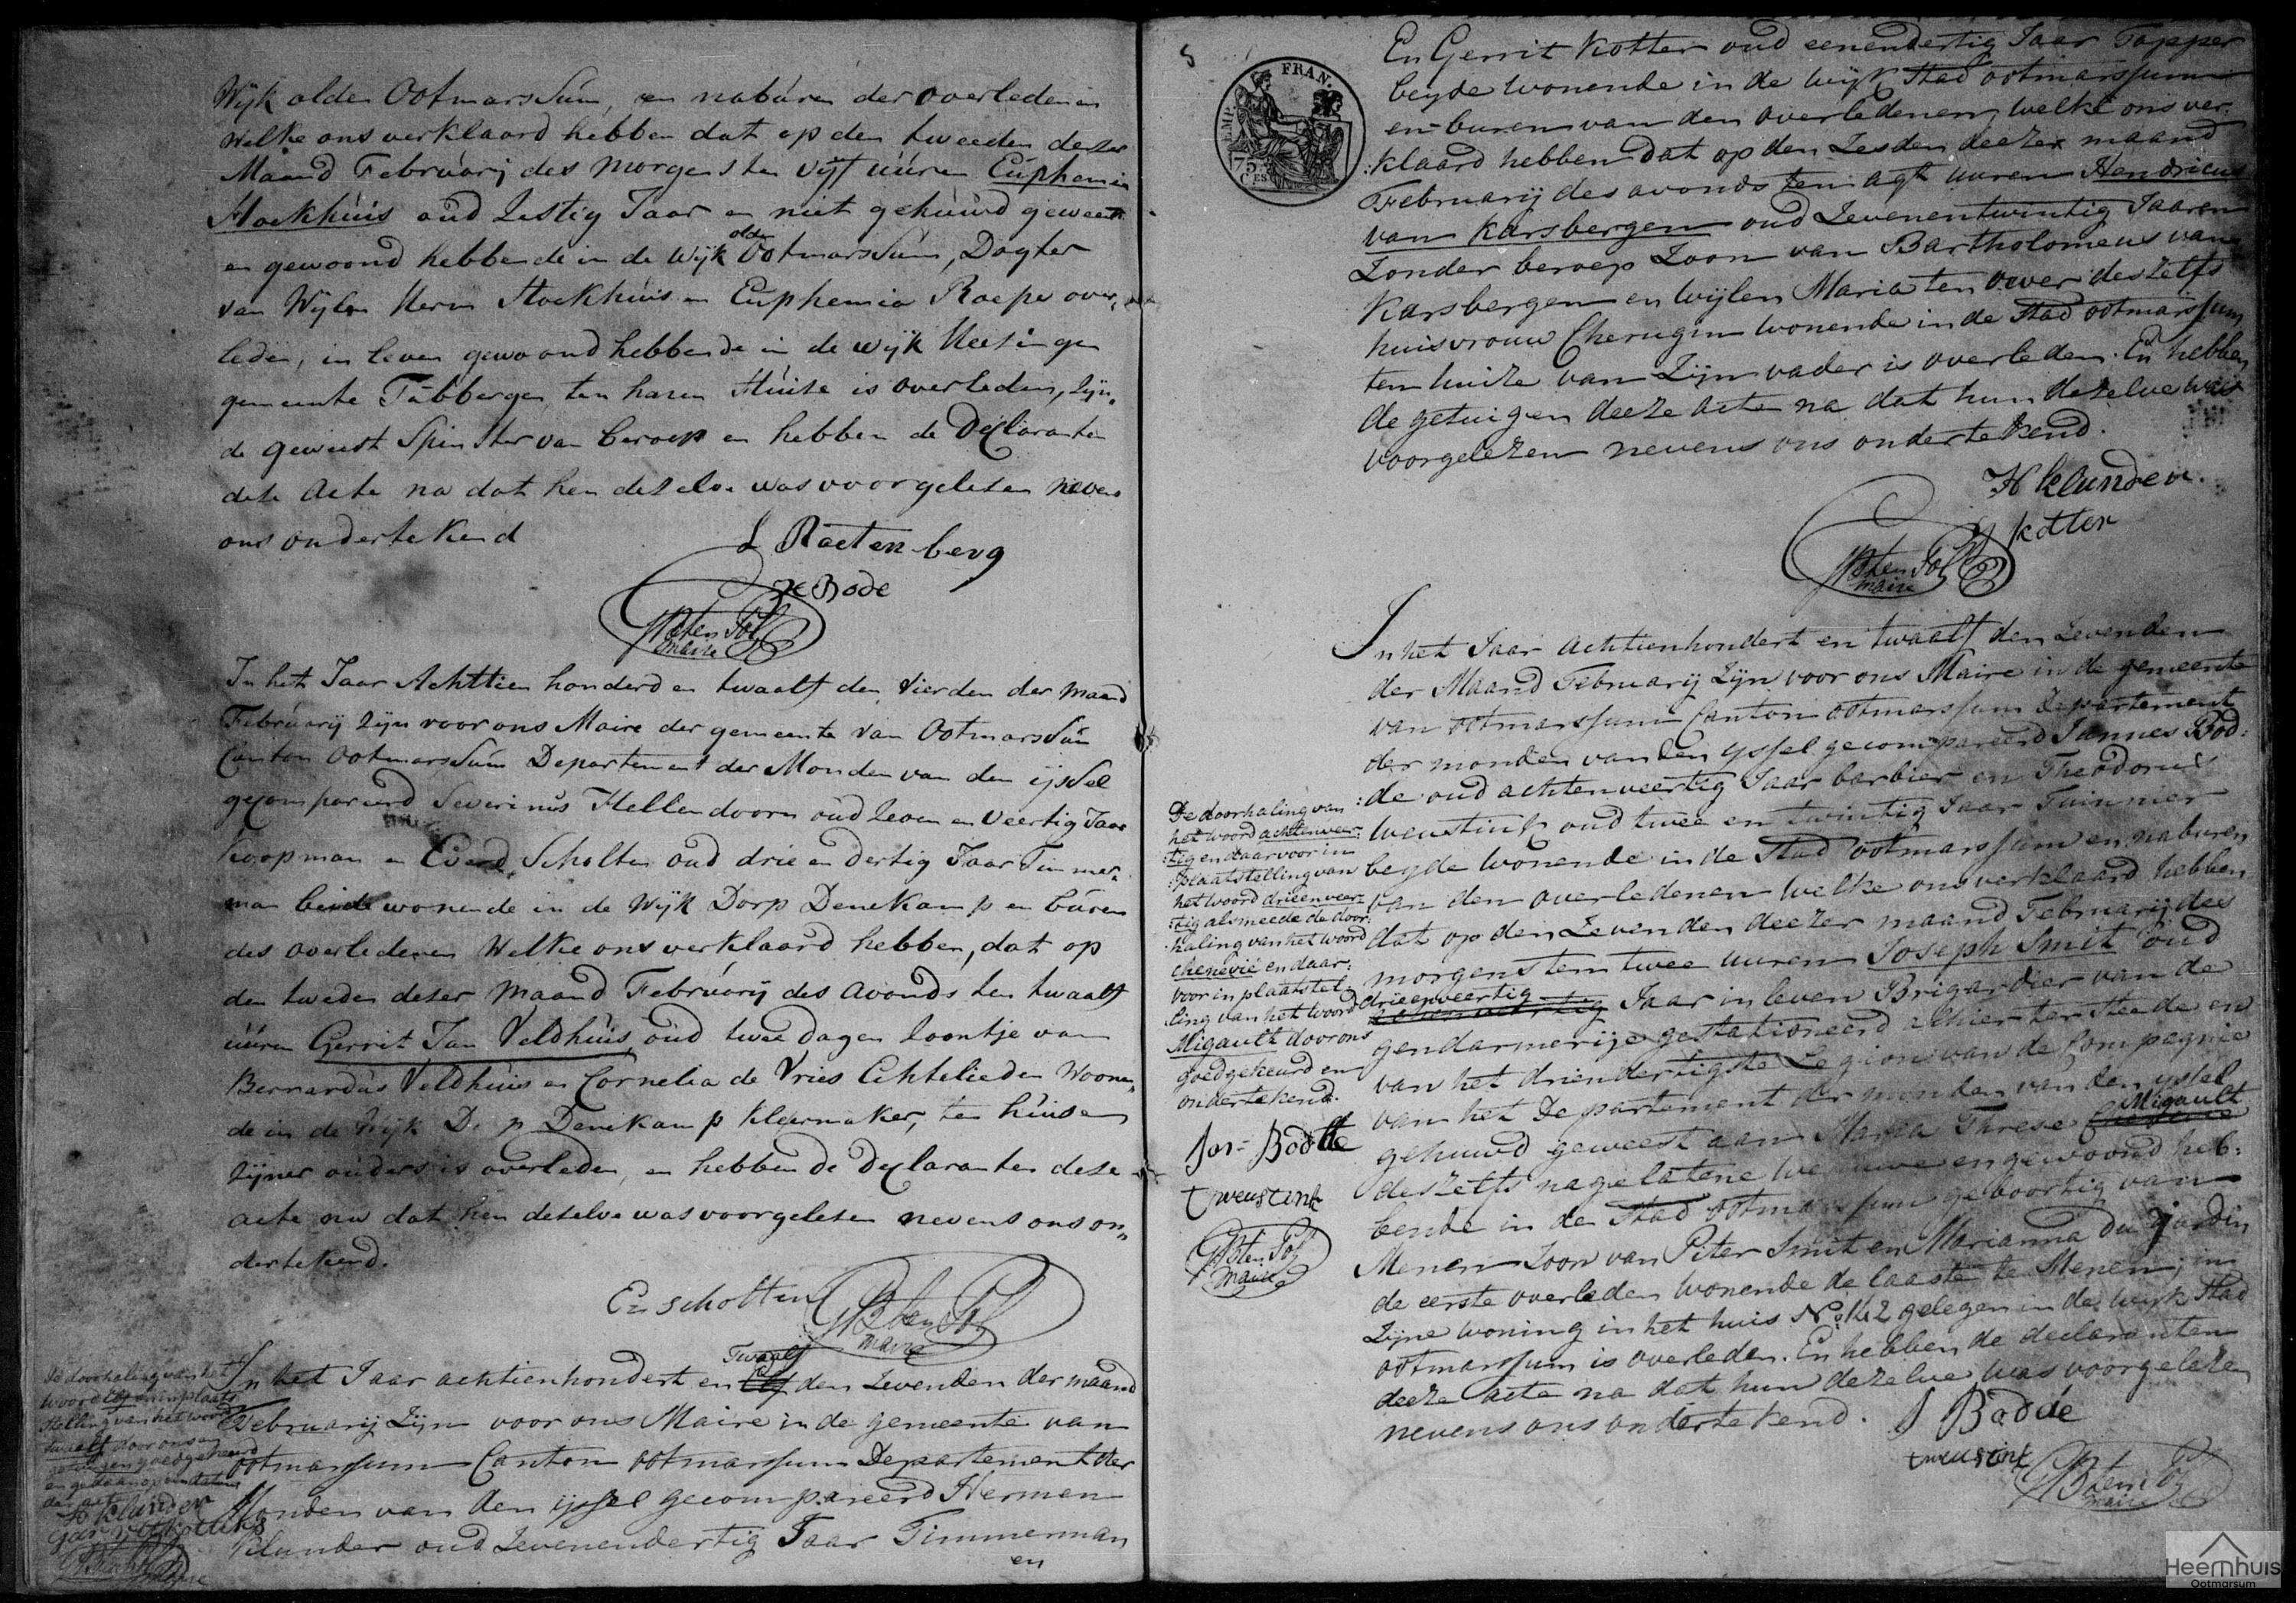 Wijk olden Ootmarssum, en naburen der overledenen
Welke ons verklaard hebben dat op den tweeden dezer
Maand February des morgens ten vyf uuren Euphemia
Stockhuis oud Zestig Jaar en niet gehuwd geweest
olden
en gewoond hebbende in de wijk Ootmarssum, Dogter
van Wijlen Herm Stockhuis en Euphemia Roepe over„
leden, in leven gewoond hebbende in de wyk
gemeente Tubbergen, ten haren Huize is overleden, zyn„
de geweest Spinster van beroep en hebben de Declaranten
deze Acte na dat hen dezelve was voorgelezen nevens
ons ondertekend
Roetenberg
Bode
ten Pol
maire
In het Jaar Achttien honderd en twaalf den Vierden der Maand
February zijn voor ons Maire der gemeente van Ootmarssum
Canton Ootmarssum Departement der Monden van den ijssel
gecompareerd Severinus Hellendoorn oud Zeven en Veertig Jaar
Koopman en Everd Scholten oud drie en dertig Jaar Timmer„
man beide wonende in de Wijk Dorp Denekamp en buren
des overledenen Welke ons verklaard hebben, dat op
den tweden dezer Maand February des Avonds ten twaalf
uuren Gerrit Jan Veldhuis, oud twee dagen Zoontje van
Bernardus Veldhuis en Cornelia de Vries Echtelieden Woonen„
de in de Wijk D p Denekamp Kleermaker, ten huise
zijner ouders is overleden, en hebben de Declaranten deze
acte na dat hen dezelve was voorgelezen nevens ons on„
dertekend.
E. Scholten
ten Pol
maire
De doorhaling van het
woord elf en in plaats
stelling van het woord
twaalf door ons en
getuigen goedgekeurd
H klunder
Twaalf
In het Jaar achtienhondert en elf den Zevenden der maand
February Zijn voor ons Maire in de gemeente van
ootmarssum Canton ootmarssum Departement der
Monden van den ijssel gecompareerd Hermen
Klunder oud Zevenendertig Jaar Timmerman
en
5
EMP. FRAN.
75
CES
En Gerrit Kotter oud eenendertig Jaar Tapper
beyde wonende in de wijk Stad ootmarssum
en buren van den overledenen, welke ons ver:
:klaard hebben dat op den Zesden deezer maand
February des avonds ten agt uuren Hendricus
van Karsbergen oud Zevenentwintig Jaaren
Zonder beroep Zoon van Bartholomeus van
Karsbergen en wijlen Maria ten over deszelfs
huisvrouw Cherugin wonende in de Stad ootmarssum
ten huize van Zijn vader is overleden. En hebben
de getuigen deeze acte na dat hun dezelve was
voorgelezen nevens ons ondertekend.
H klunder.
kotter
ten Pol
maire
In het Jaar achtienhondert en twaalf den Zevenden
der Maand February Zijn voor ons Maire in de gemeente
van ootmarssum Canton ootmarssum Departement
der monden van den yssel gecompareerd Jannes Bod:
:de oud achtenveertig Jaar barbier en Theodorus
Weustink oud twee en twintig Jaar Tuinnier
beyde wonende in de Stad ootmarssum en naburen
van den overledenen welke ons verklaard hebben
dat op den Zevenden deezer maand February des
morgens ten twee uuren Joseph Smit oud
drieenveertig
Jaar in leven Brigardier van de
gendarmerije gestationeerd alhier ter steede en
van het driendertigste Legioen van de Compagnie
van het Departement der monden van den yssel
Migault
gehuuwd geweest aan Maria Threse
deszelfs nagelatene weduwe en gewoond heb:
bende in de Stad ootmarssum geboortig van
Menen Zoon van Piter Smit en Marianna du Jardin
de eerste overleden wonende de laaste te Menen, in
Zijne woning in het huis No. 142 gelegen in de wyk Stad
ootmarssum is overleden. En hebben de declaranten
deeze acte na dat hun dezelve was voorgelezen
nevens ons ondertekend.
J Bodde
t weustink
ten Pol
maire
De doorhaling van
het woord achtenveer:
:tig en daar voor in
:plaatstelling van
het woord drieenveer:
:tig alsmeede de door:
:haling van het woord
chenevie en daar:
voor in plaatstel:
:ling van het woord
Migault door ons
goedgekeurd en
ondertekend.
Jan Bodde
t weustink
ten Pol
maire
Heemhuis
Ootmarsum